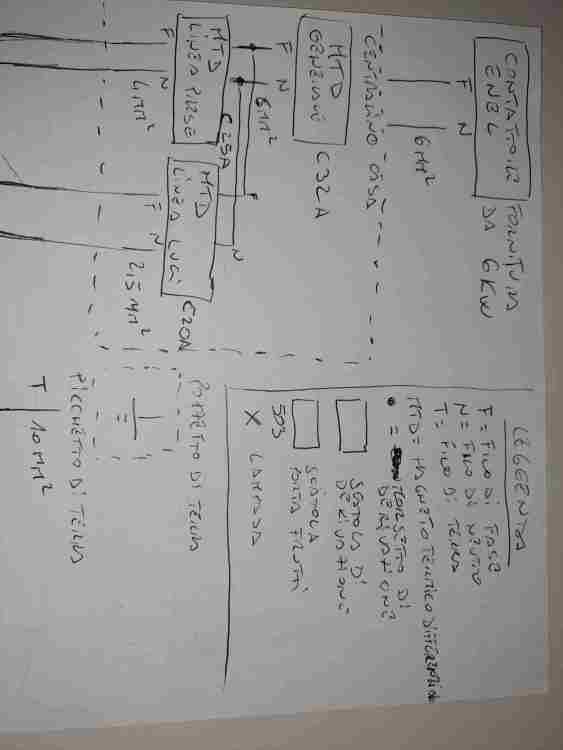 CONTATTORE
ENEL
FORNITURA
DA 6KW
F N
6MM²
CENTRALINO CASA
MTD
GENERALE
C32A
F N
6MM²
MTD
LINEA PRESE
C25A
F N
6MM²
MTD
LINEA LUCI
C20A
F N
F N
2,5MM²
POZZETTO DI TERRA
PICCHETTO DI TERRA
T 10MM²
LEGGENTDA
F= FILO DI FASE
N= FILO DI NEUTRO
T= FILO DI TERRA
MTD= MAGNETO TERMICO DIFFERENZIALE
= MORSETTO DI
DERIVAZIONE
SCATOLA DI
DERIVAZIONE
503 SCATOLA
PORTA FRUTTI
X LAMPADA